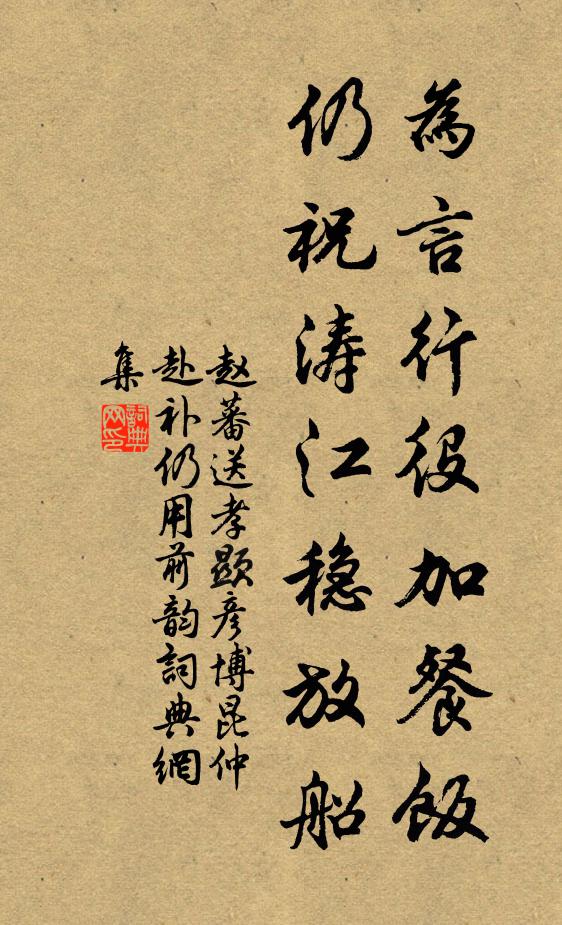 為言行役加餐飯
仍祝涛江稳放船
赵蕃送孝顕彦博昆仲
赴补仍用前韵詞典網
集
詞典
网印